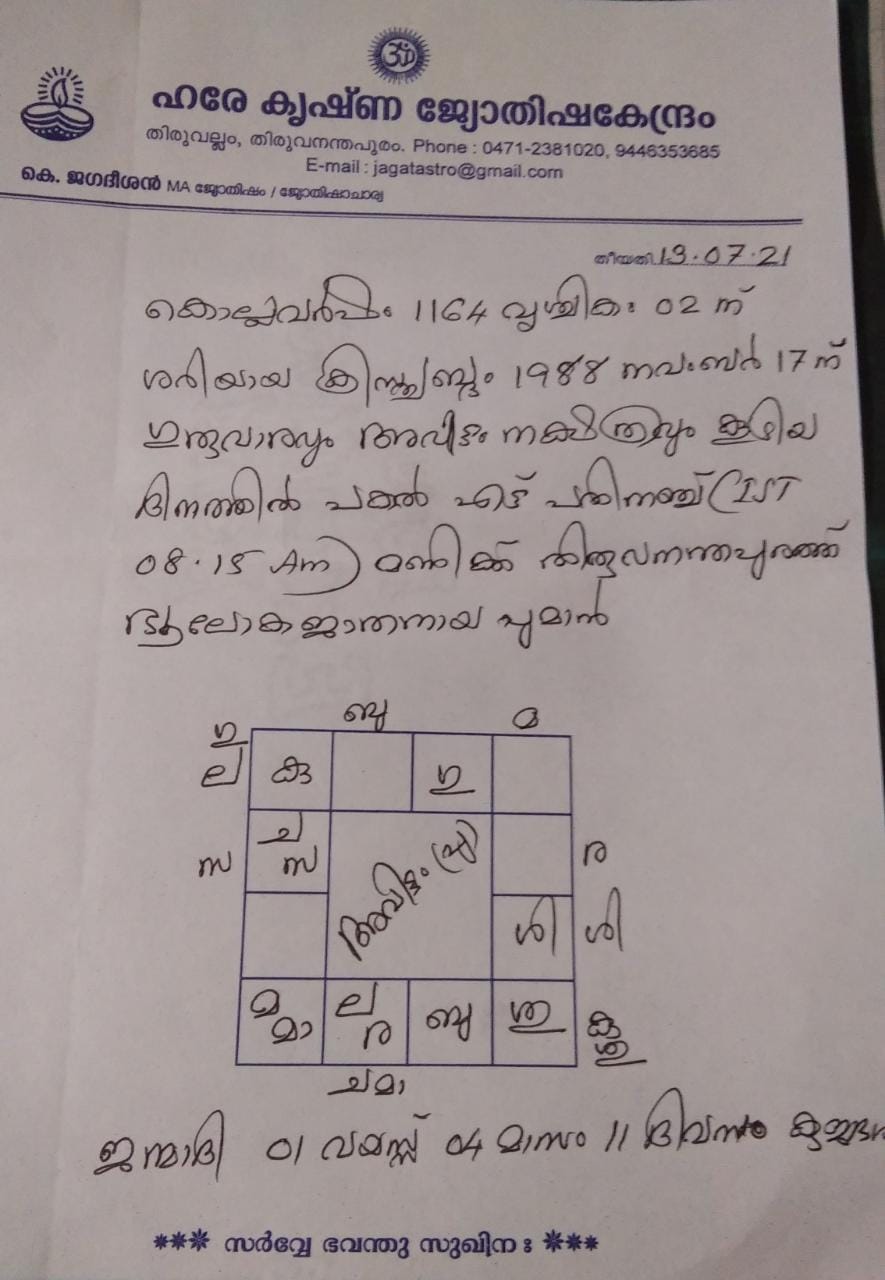 ॐ
ഹരേ കൃഷ്ണ ജ്യോതിഷകേന്ദ്രം
തിരുവല്ലം, തിരുവനന്തപുരം. Phone : 0471-2381020, 9446353685
E-mail : jagatastro@gmail.com
കെ. ജഗദീശൻ MA ജ്യോതിഷം / ജ്യോതിഷാചാര്യ
തീയതി 13.07.21
കൊല്ലവർഷം 1164 വൃശ്ചികം 02 ന്
ശരിയായ ക്രിസ്ത്വബ്ദം 1988 നവംബർ 17 ന്
ഗുരുവാരവും അവിട്ടം നക്ഷത്രവും കൂടിയ
ദിനത്തിൽ പകൽ എട്ട് പതിനഞ്ച് (IST
08.15 Am) മണിക്ക് തിരുവനന്തപുരത്ത്
ഭൂലോകജാതനായ പുമാൻ
ഗു ബു മ
ല കു ഗു
സ ച സ ര
അവിട്ടം
ശി ശി
മ മാ ല ര ബു ശു
ച മാ
ജന്മാദി 01 വയസ്സ് 04 മാസം 11 ദിവസം
*** സർവ്വേ ഭവന്തു സുഖിനഃ ***